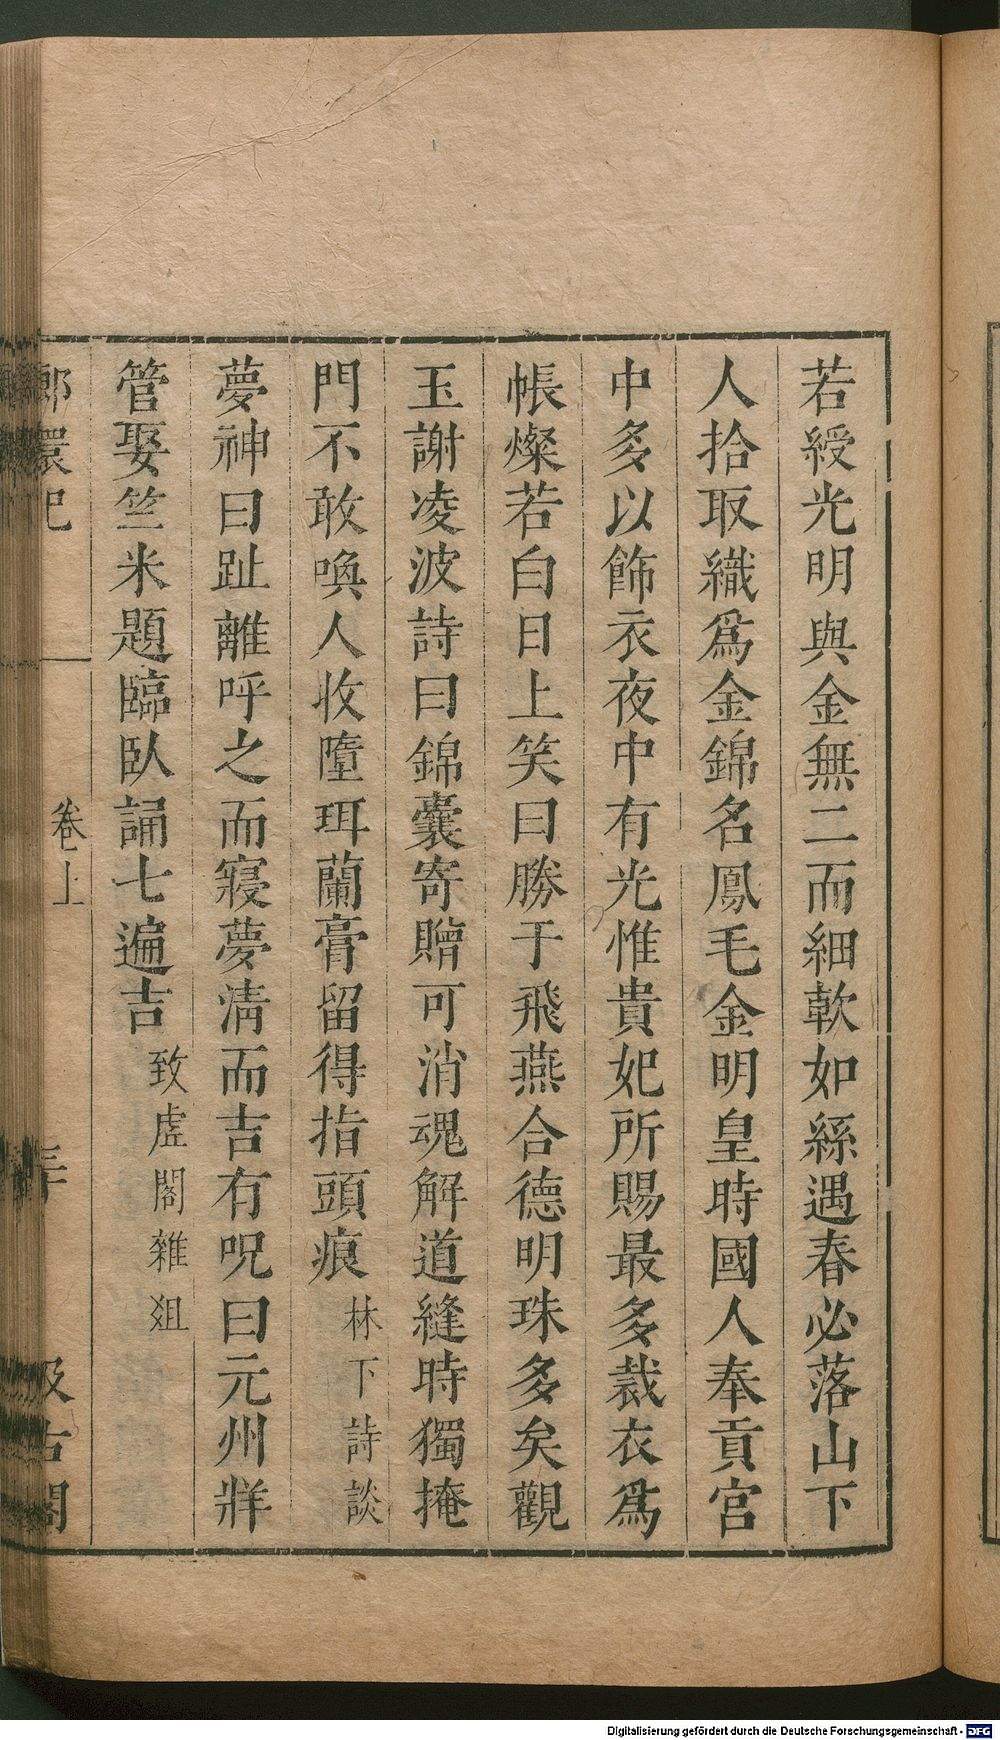 若綬光明與金無二而細軟如絲遇春必落山下
人拾取織爲金錦名鳳毛金明皇時國人奉貢宮
中多以飾衣夜中有光惟貴妃所賜最多裁衣爲
帳燦若白日上笑曰勝于飛燕合德明珠多矣觀
玉謝凌波詩曰錦囊寄贈可消魂解道縫時獨掩
門不敢喚人收墮珥蘭膏留得指頭痕林下詩談
夢神曰趾離呼之而寢夢清而吉有呪曰元州牂
管娶竺米題臨臥誦七遍吉致虛閣雜俎
環记
卷上
古閣
Digitalisierung gefördert durch die Deutsche Forschungsgemeinschaft - DFG